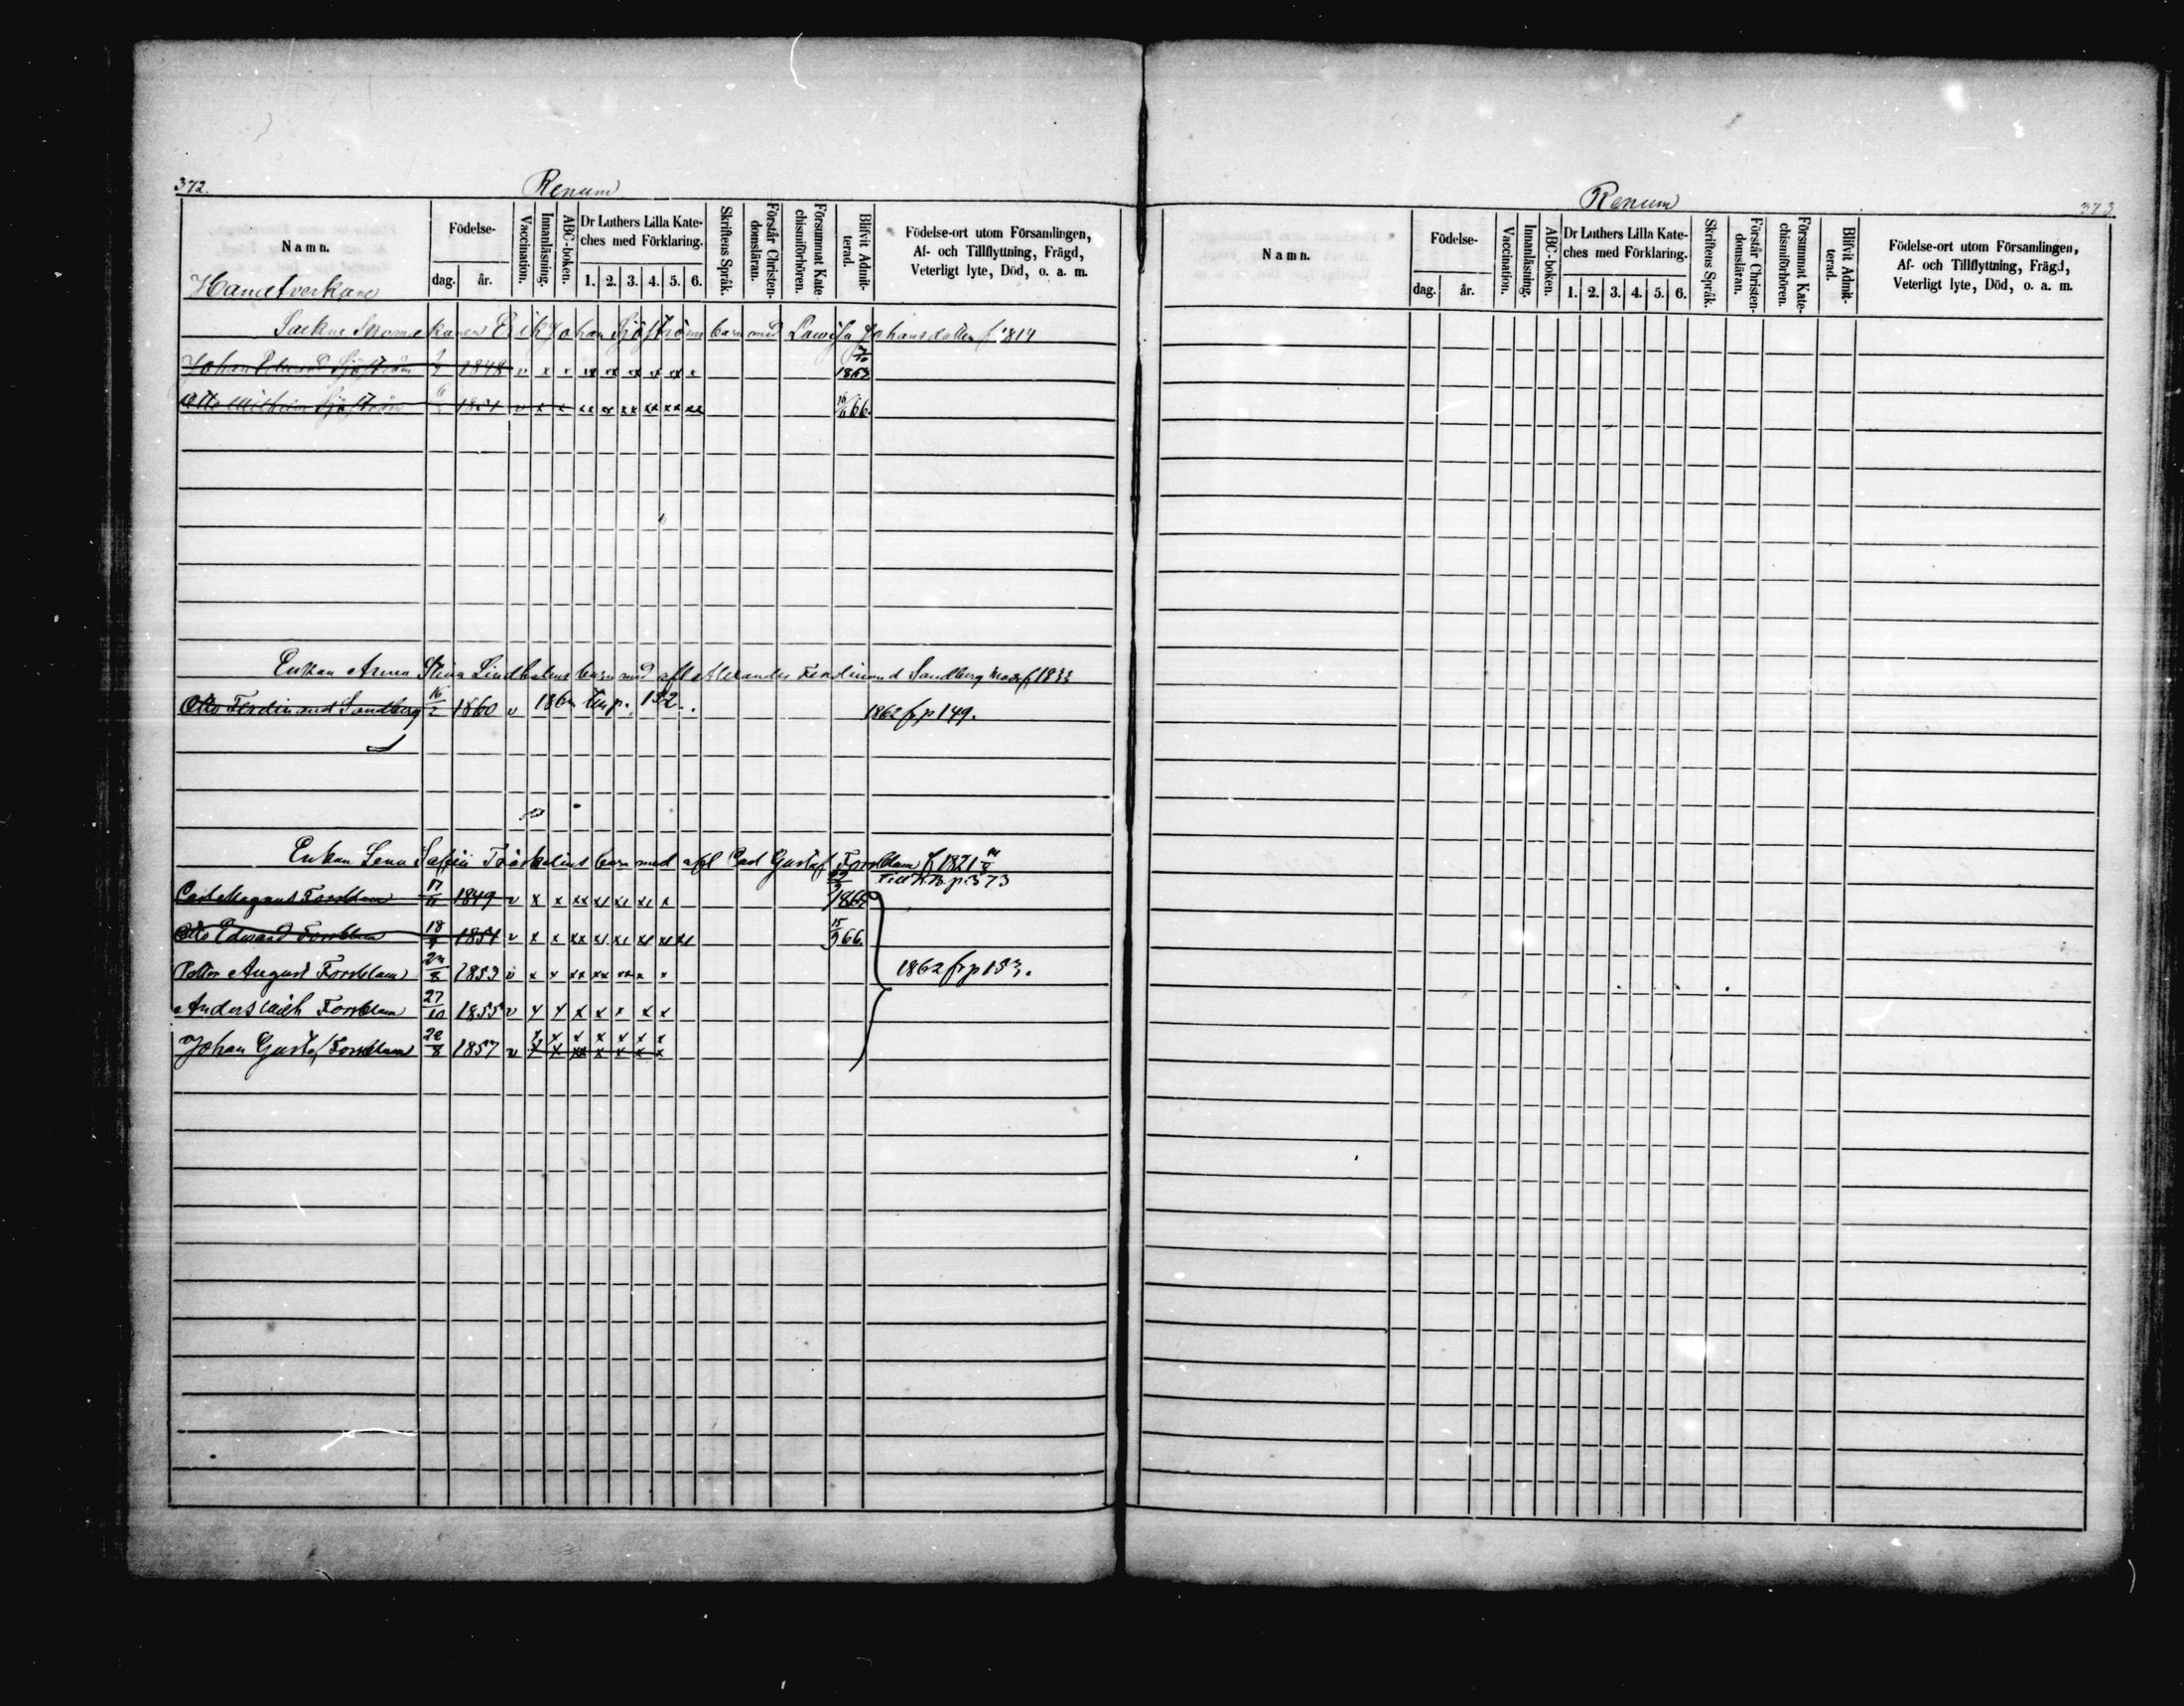 372.
Renum
Namn.
Födelse-
dag.
år.
Vaccination.
Innanläsning.
ABC-boken.
Dr Luthers Lilla Kate-
ches med Förklaring.
1. 2. 3. 4. 5. 6.
Skriftens Språk.
Förstår Christen-
domsläran.
Försummat Kate-
chismiförhören.
Blifvit Admit-
terad.
Födelse-ort utom Församlingen,
Af- och Tillflyttning, Frägd,
Veterligt lyte, Död, o. a. m.
Handtverkare
Erik Johan Sjöströms barn med Lovisa Johansdotter f. 1814
Johan Edvard Sjöström 1848 v x x xx xx xx xx xx x 1863
Otto Wilhelm Sjöström 1851 v x x xx xx xx xx xx xx 66.
Enkan Anna Stina Lindholms barn med afl Alexander Ferdinand Sandberg f 1833
Otto Ferdinand Sandberg 16/2 1860 v p. 152. 1862 fr p 149.
Enkan Lena barn med afl Carl Gustaf Forsblom f 1821
Till p. 373
Carl Magnus Forsblom 17/11 1849 v x x xx xx xx xx x
Otto Edward Forsblom 1851 v x x xx xx xx xx xx xx 15/9 66.
Petter August Forsblom 1853 v x x xx xx xx x x 1862 fr p 153.
Anders Wilh Forsblom 27/10 1855 v x x x x x x x
Johan Gustaf Forsblom 1857 v x x x x x x x
Renum
373.
Namn.
Födelse-
dag.
år.
Vaccination.
Innanläsning.
ABC-boken.
Dr Luthers Lilla Kate-
ches med Förklaring.
1. 2. 3. 4. 5. 6.
Skriftens Språk.
Förstår Christen-
domsläran.
Försummat Kate-
chismiförhören.
Blifvit Admit-
terad.
Födelse-ort utom Församlingen,
Af- och Tillflyttning, Frägd,
Veterligt lyte, Död, o. a. m.